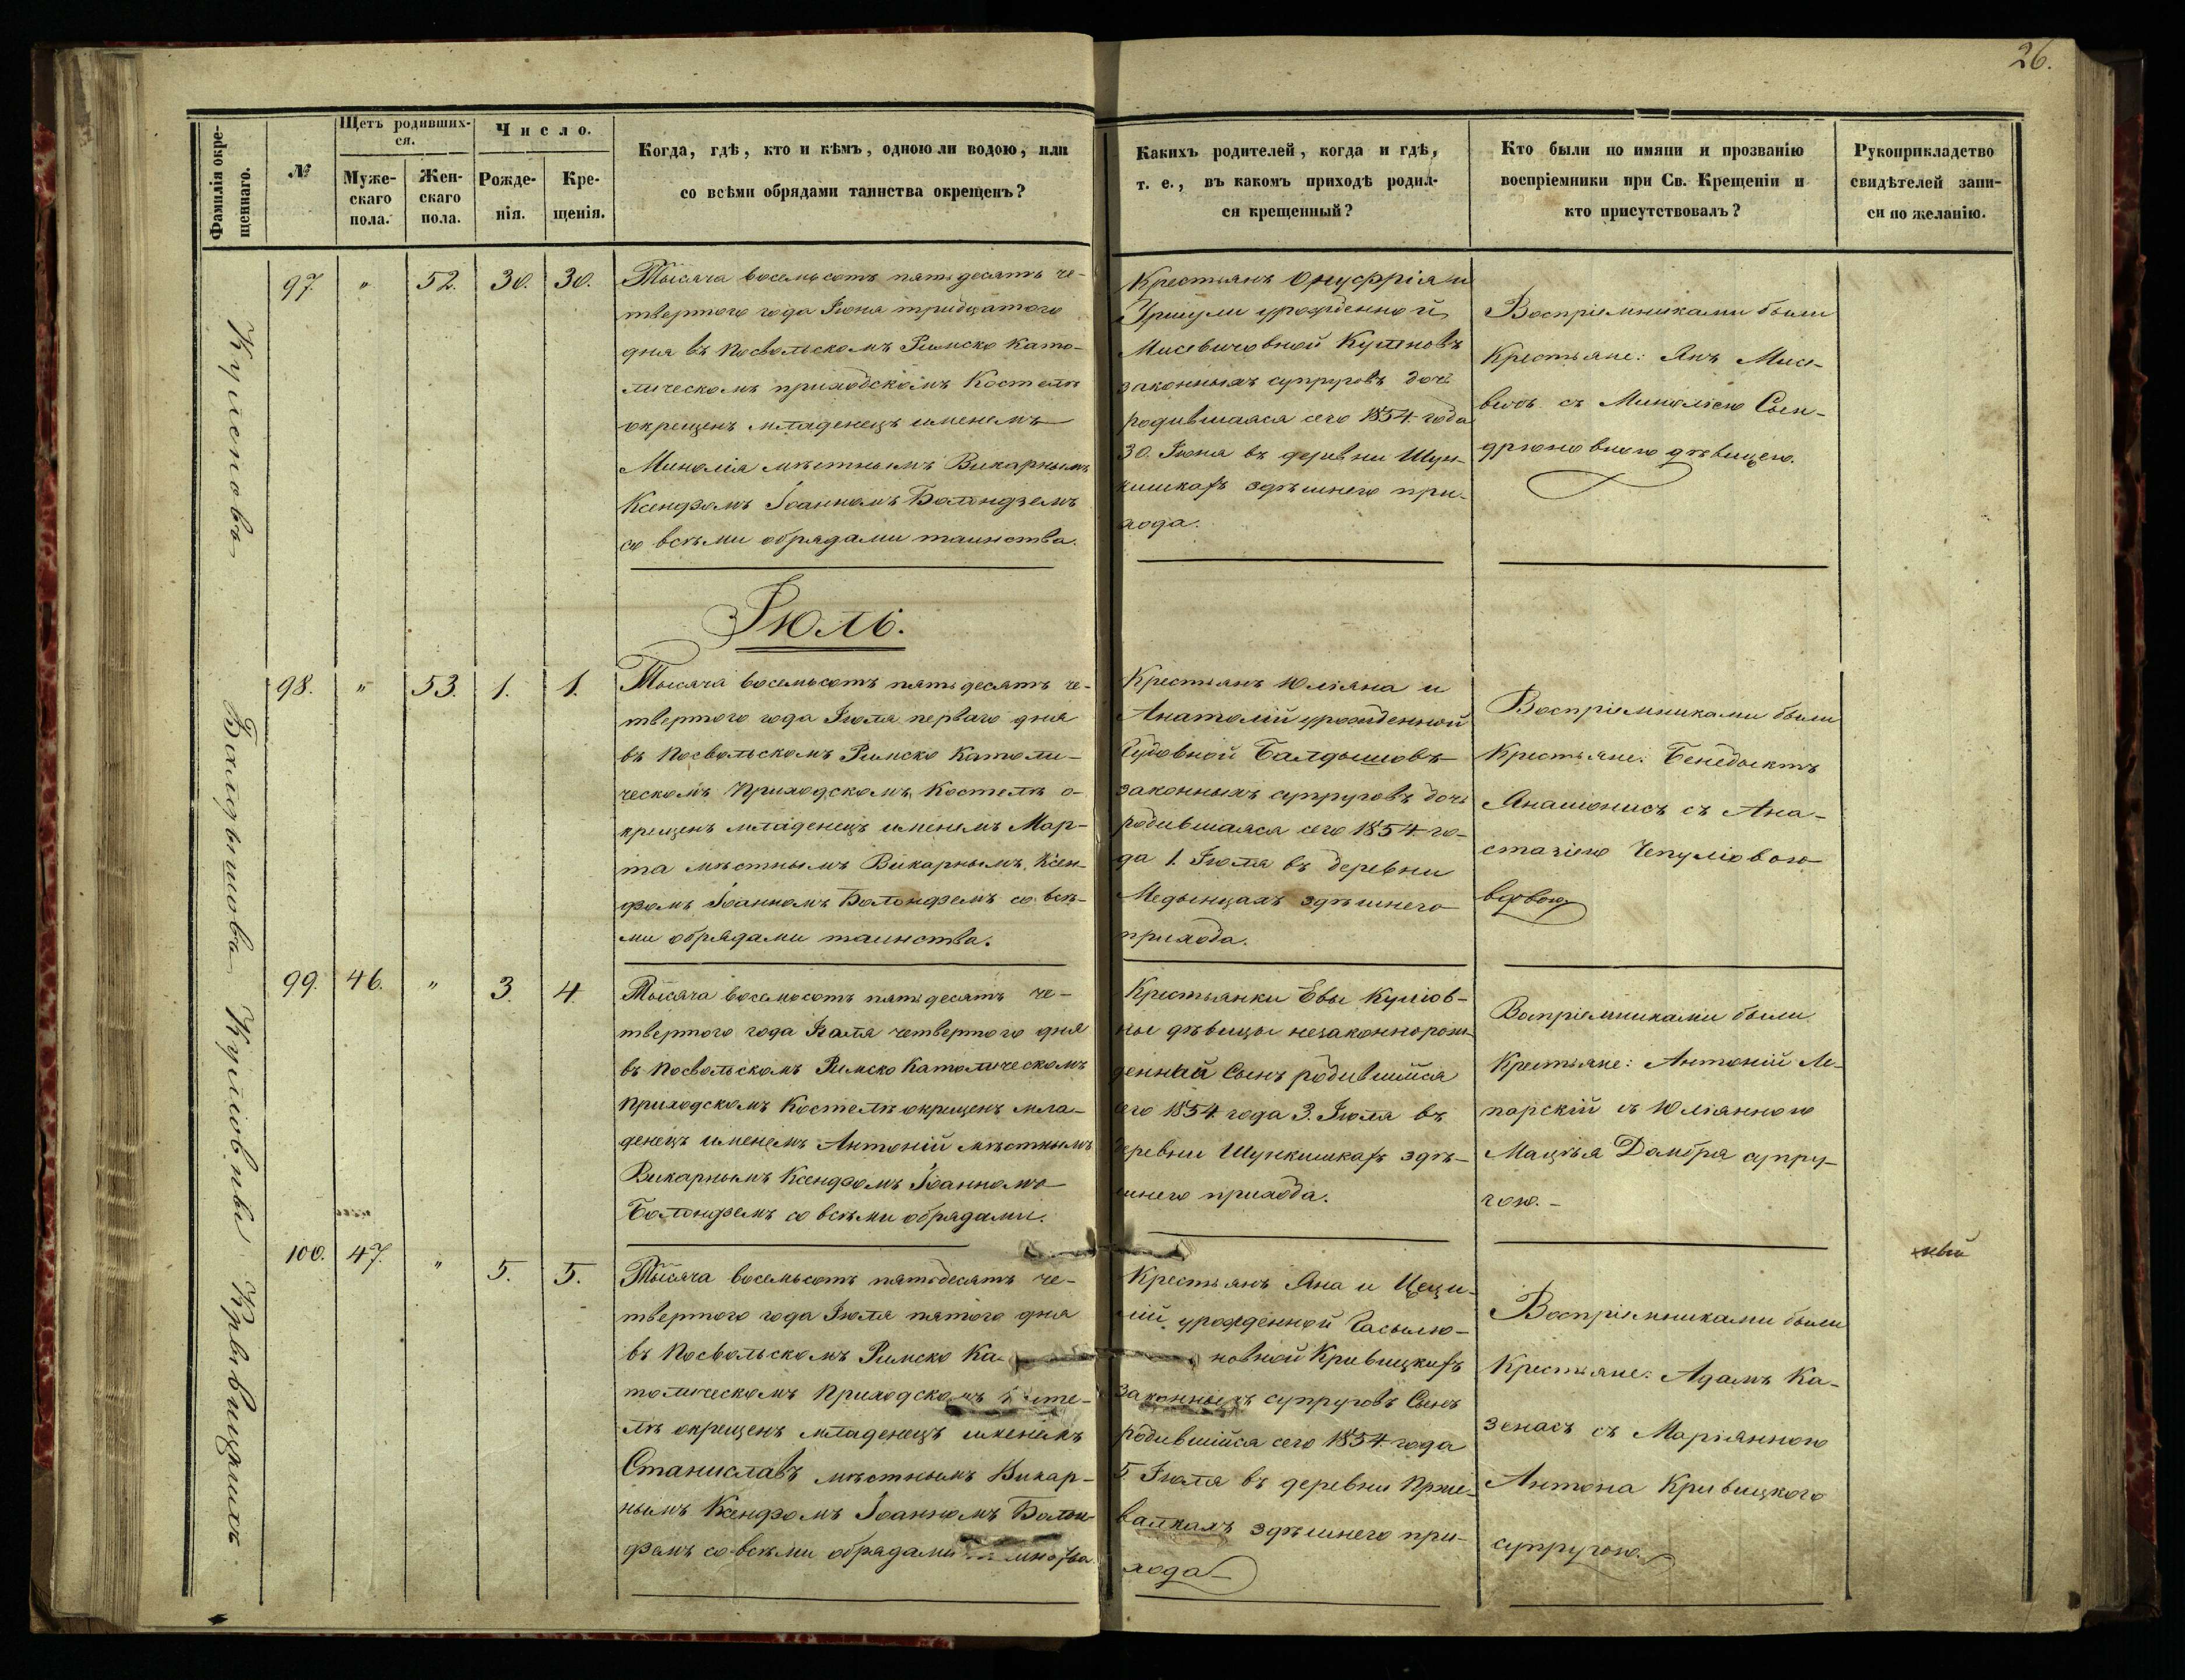 26.
Фамилія окре-
щеннаго.
№
Щетъ родивших-
ся.
Муже-
скаго
пола.
Жен-
скаго
пола.
Число.
Рожде-
нія.
Кре-
щенія.
Когда, гдѣ, кто и кѣмъ, одною ли водою, или
со всѣми обрядами таинства окрещенъ?
Какихъ родителей, когда и гдѣ,
т. е., въ какомъ приходѣ родил-
ся крещенный?
Кто были по имяни и прозванію
воспріемники при Св. Крещеніи и
кто присутствовалъ?
Рукоприкладство
свидѣтелей запи-
си по желанію.
97. " 52. 30. 30.
Тысяча восемьсотъ пятьдесятъ че-
твертого года Іюня тридцатого
дня въ Посвольскомъ Римско Като-
лическомъ приходскомъ Костелѣ
окрещенъ младенецъ именемъ
мѣстнымъ Викарнымъ
Ксендзомъ Іоанномъ Болондземъ
со всѣми обрядами таинства.
Крестьянъ Онуфрія и
Уршули урожденной
Мисевичовной
законныхъ супруговъ дочь
родившаяся сего 1854 года
30. Іюня въ деревни Шун-
кишкахъ здѣшнего при-
хода.
Воспріемниками были
Крестьяне: Янъ Мисе-
вичъ съ Сын-
дрюновною дѣвицею.
Іюль.
98. " 53. 1. 1.
Балдышовъ
Тысяча восемьсотъ пятьдесятъ че-
твертого года Іюля перваго дня
въ Посвольскомъ Римско Католи-
ческомъ Приходскомъ Костелѣ о-
крещенъ младенецъ именемъ Мар-
та мѣстнымъ Викарнымъ Ксен-
дзомъ Іоанномъ Болондземъ со всѣ-
ми обрядами таинства.
Крестьянъ Юліяна и
Анатоліи урожденной
Балдышовъ
законныхъ супруговъ дочь
родившаяся сего 1854 го-
да 1. Іюля въ деревни
Медынцахъ здѣшнего
прихода.
Воспріемниками были
Крестьяне: Бенедыктъ
Янашонисъ съ Ана-
стазіею Чепуліовою
вдовою
99. 46. " 3. 4.
Куліовны
Тысяча восемьсотъ пятьдесятъ че-
твертого года Іюля четвертого дня
въ Посвольскомъ Римско Католическомъ
Приходскомъ Костелѣ окрещенъ мла-
денецъ именемъ Антоній мѣстнымъ
Викарнымъ Ксендзомъ Іоанномъ
Болондземъ со всѣми обрядами.
Крестьянки Евы Куліов-
ны дѣвицы незаконнорож-
денный Сынъ родившійся
сего 1854 года 3. Іюля въ
деревни Шункишкахъ здѣ-
шнего прихода.
Воспріемниками были
Крестьяне: Антоній Ле-
парскій съ Юліянною
Мацѣя Домбра супру-
гою.
100. 47. " 5. 5.
Кривицкихъ
Тысяча восемьсотъ пятьдесятъ че-
твертого года Іюля пятого дня
въ Посвольскомъ Римско Ка-
толическомъ Приходскомъ Косте-
лѣ окрещенъ младенецъ именемъ
Станиславъ мѣстнымъ Викар-
нымъ Ксендзомъ Іоанномъ Болон-
дземъ со всѣми обрядами таинства.
Крестьянъ Яна и Цеци-
ліи урожденной Гасылю-
новной Кривицкихъ
законныхъ супруговъ Сынъ
родившійся сего 1854 года
5 Іюля въ деревни Прже-
валкахъ здѣшнего при-
хода
Воспріемниками были
Крестьяне: Адамъ Ка-
зенасъ съ Маріянною
Антона Кривицкого
супругою.